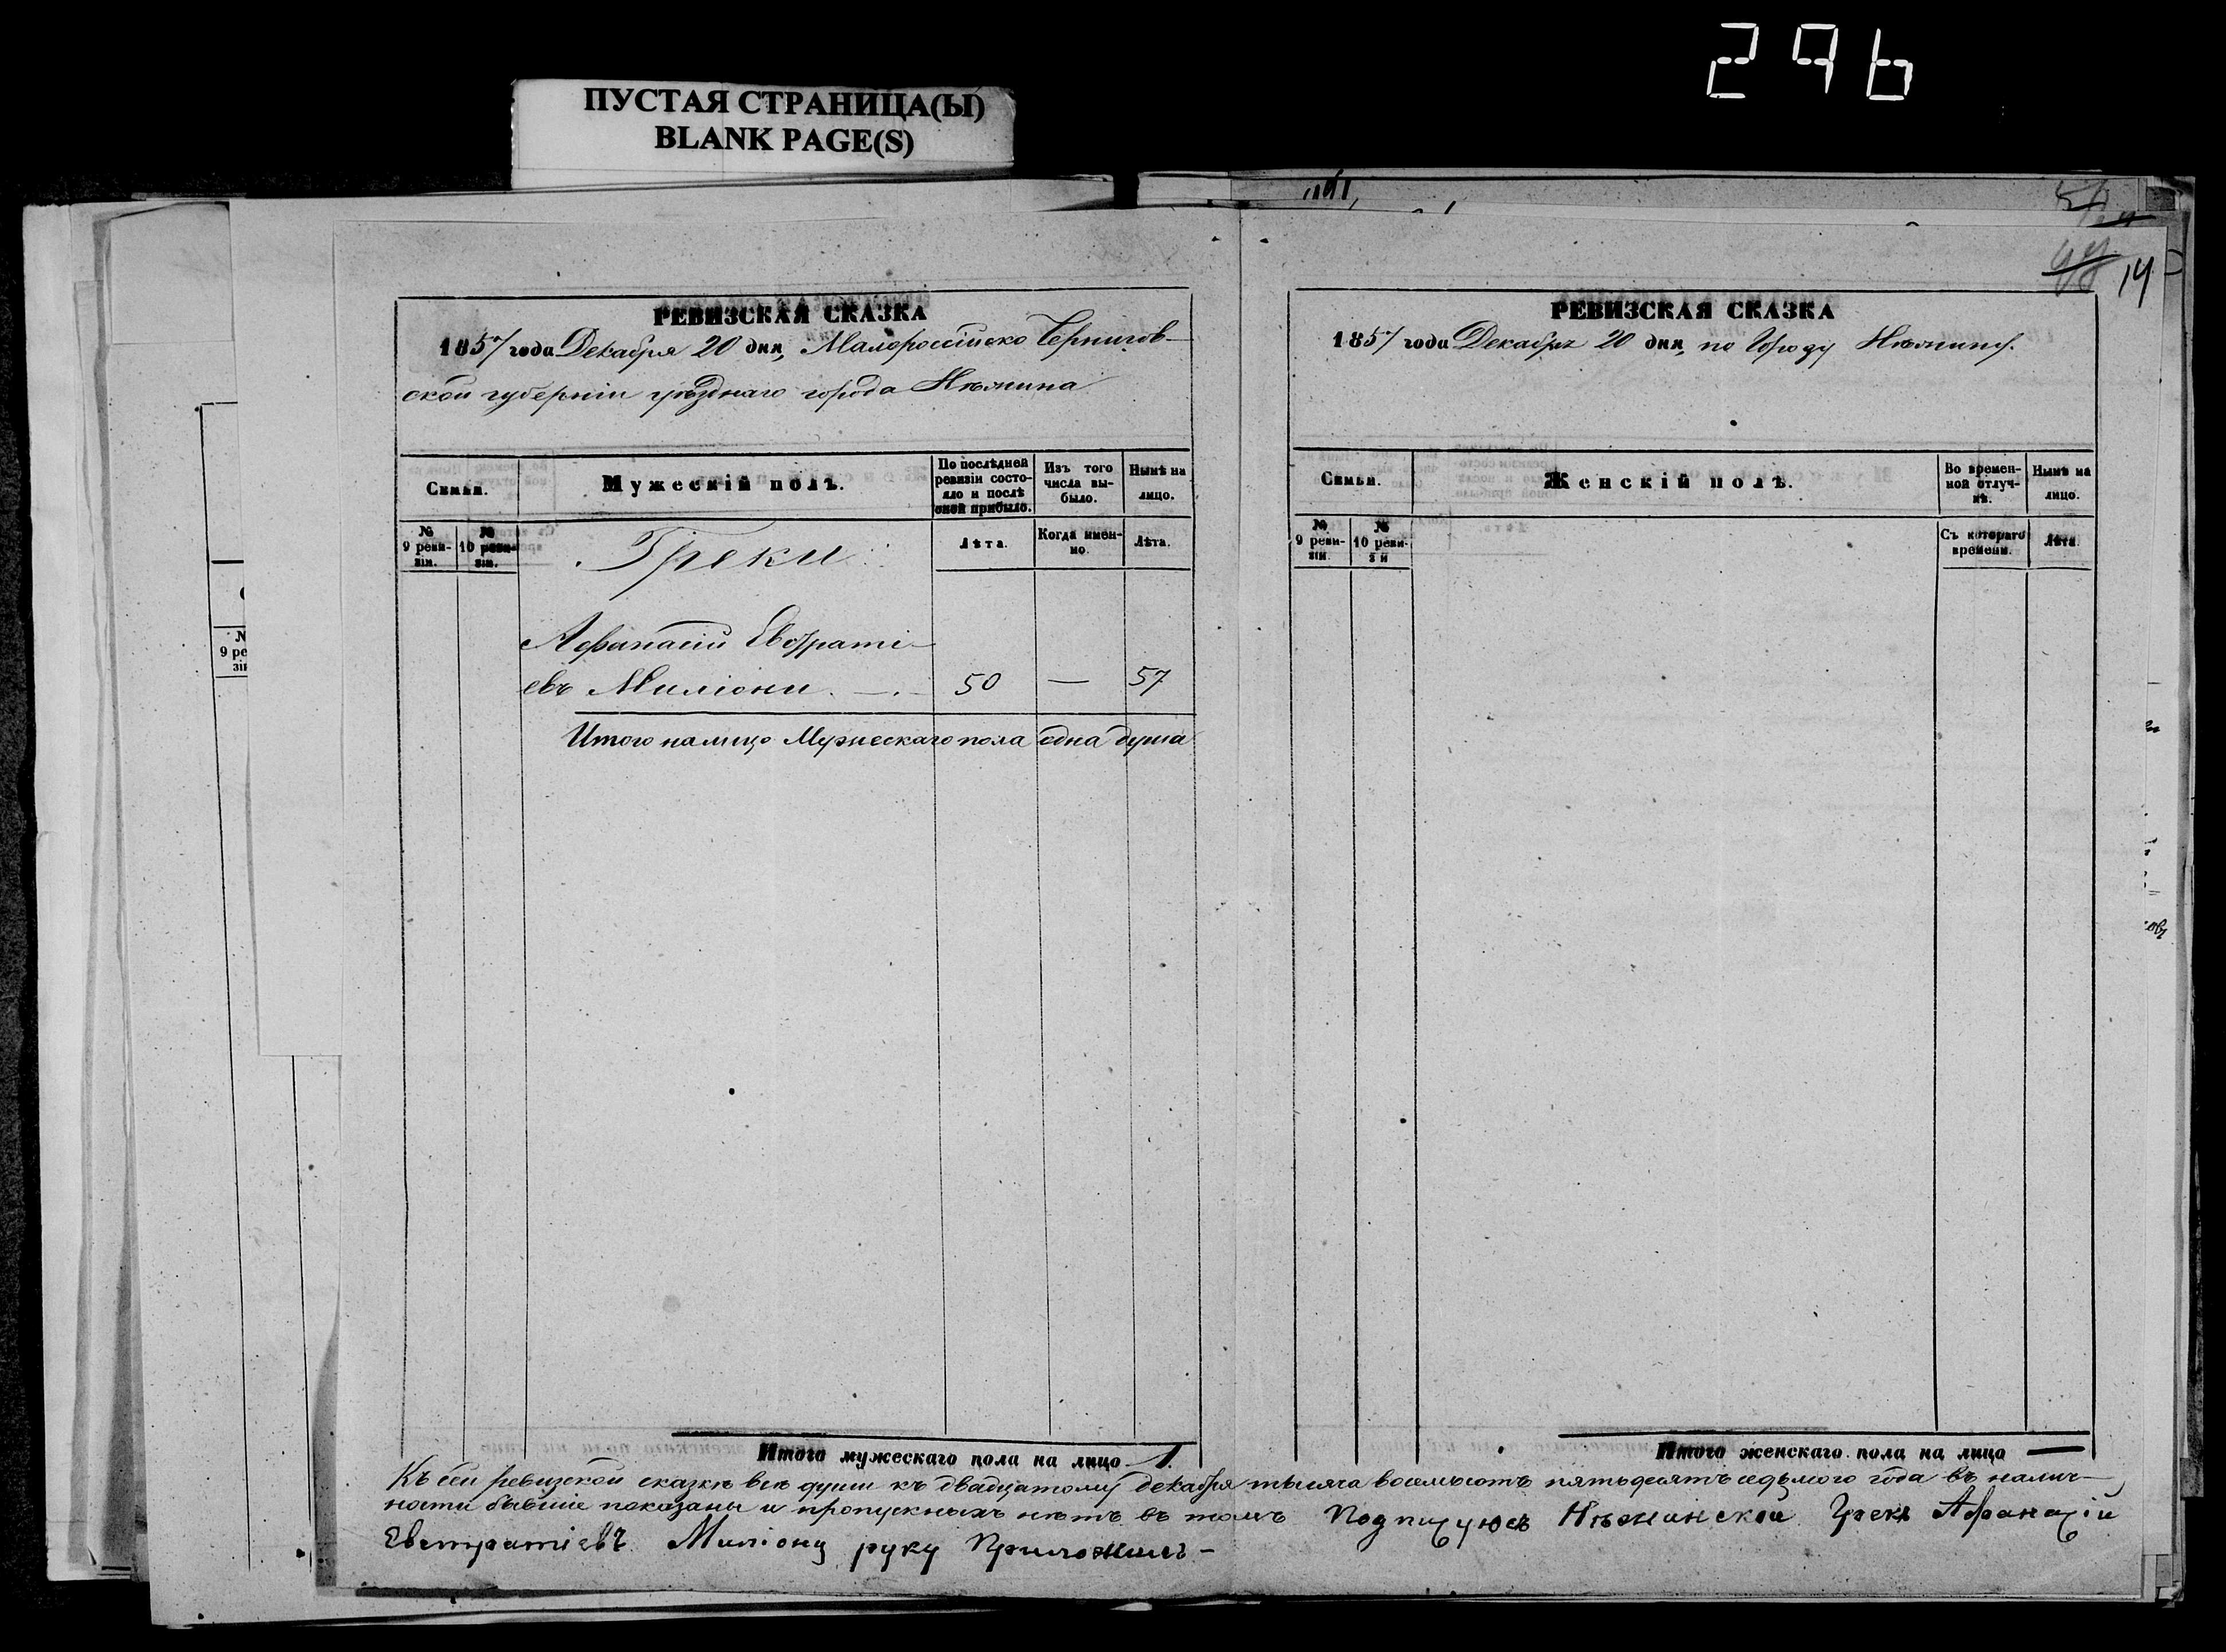 296
ПУСТАЯ СТРАНИЦА(Ы)
BLANK PAGE(S)
14
РЕВИЗСКАЯ СКАЗКА
1857 года Декабря 20 дня, Малороссійско Чернигов-
ской губерніи уѣзднаго города Нѣжина
Семьи.
Мужескій полъ.
По послѣдней ревизіи состояло и послѣ оной прибыло.
Изъ того числа выбыло.
Нынѣ на лицо.
№ 9 ревизіи.
№ 10 ревизіи.
Лѣта.
Когда именно.
Лѣта.
Греки
Афанасій Евстрати-
евъ Миліони. — 50 — 57
Итого налицо Мужескаго пола одна душа
Итого мужескаго пола на лицо 1.
РЕВИЗСКАЯ СКАЗКА
1857 года Декабря 20 дня, по Городу Нѣжину.
Семьи.
Женскій полъ.
Во временной отлучкѣ.
Нынѣ на лицо.
№ 9 ревизіи.
№ 10 ревизи
Съ котораго времени.
Лѣта.
Итого женскаго пола на лицо —
Къ сей ревизской сказкѣ всѣ души къ двадцатому декабря тысяча восемьсотъ пятьдесятъ седьмого года въ налич-
ности бывшіе показаны и пропускныхъ нѣтъ въ томъ Подписуюсь Нѣжинской Грекъ Афанасій
Евстратіевъ Миліони руку Приложилъ -